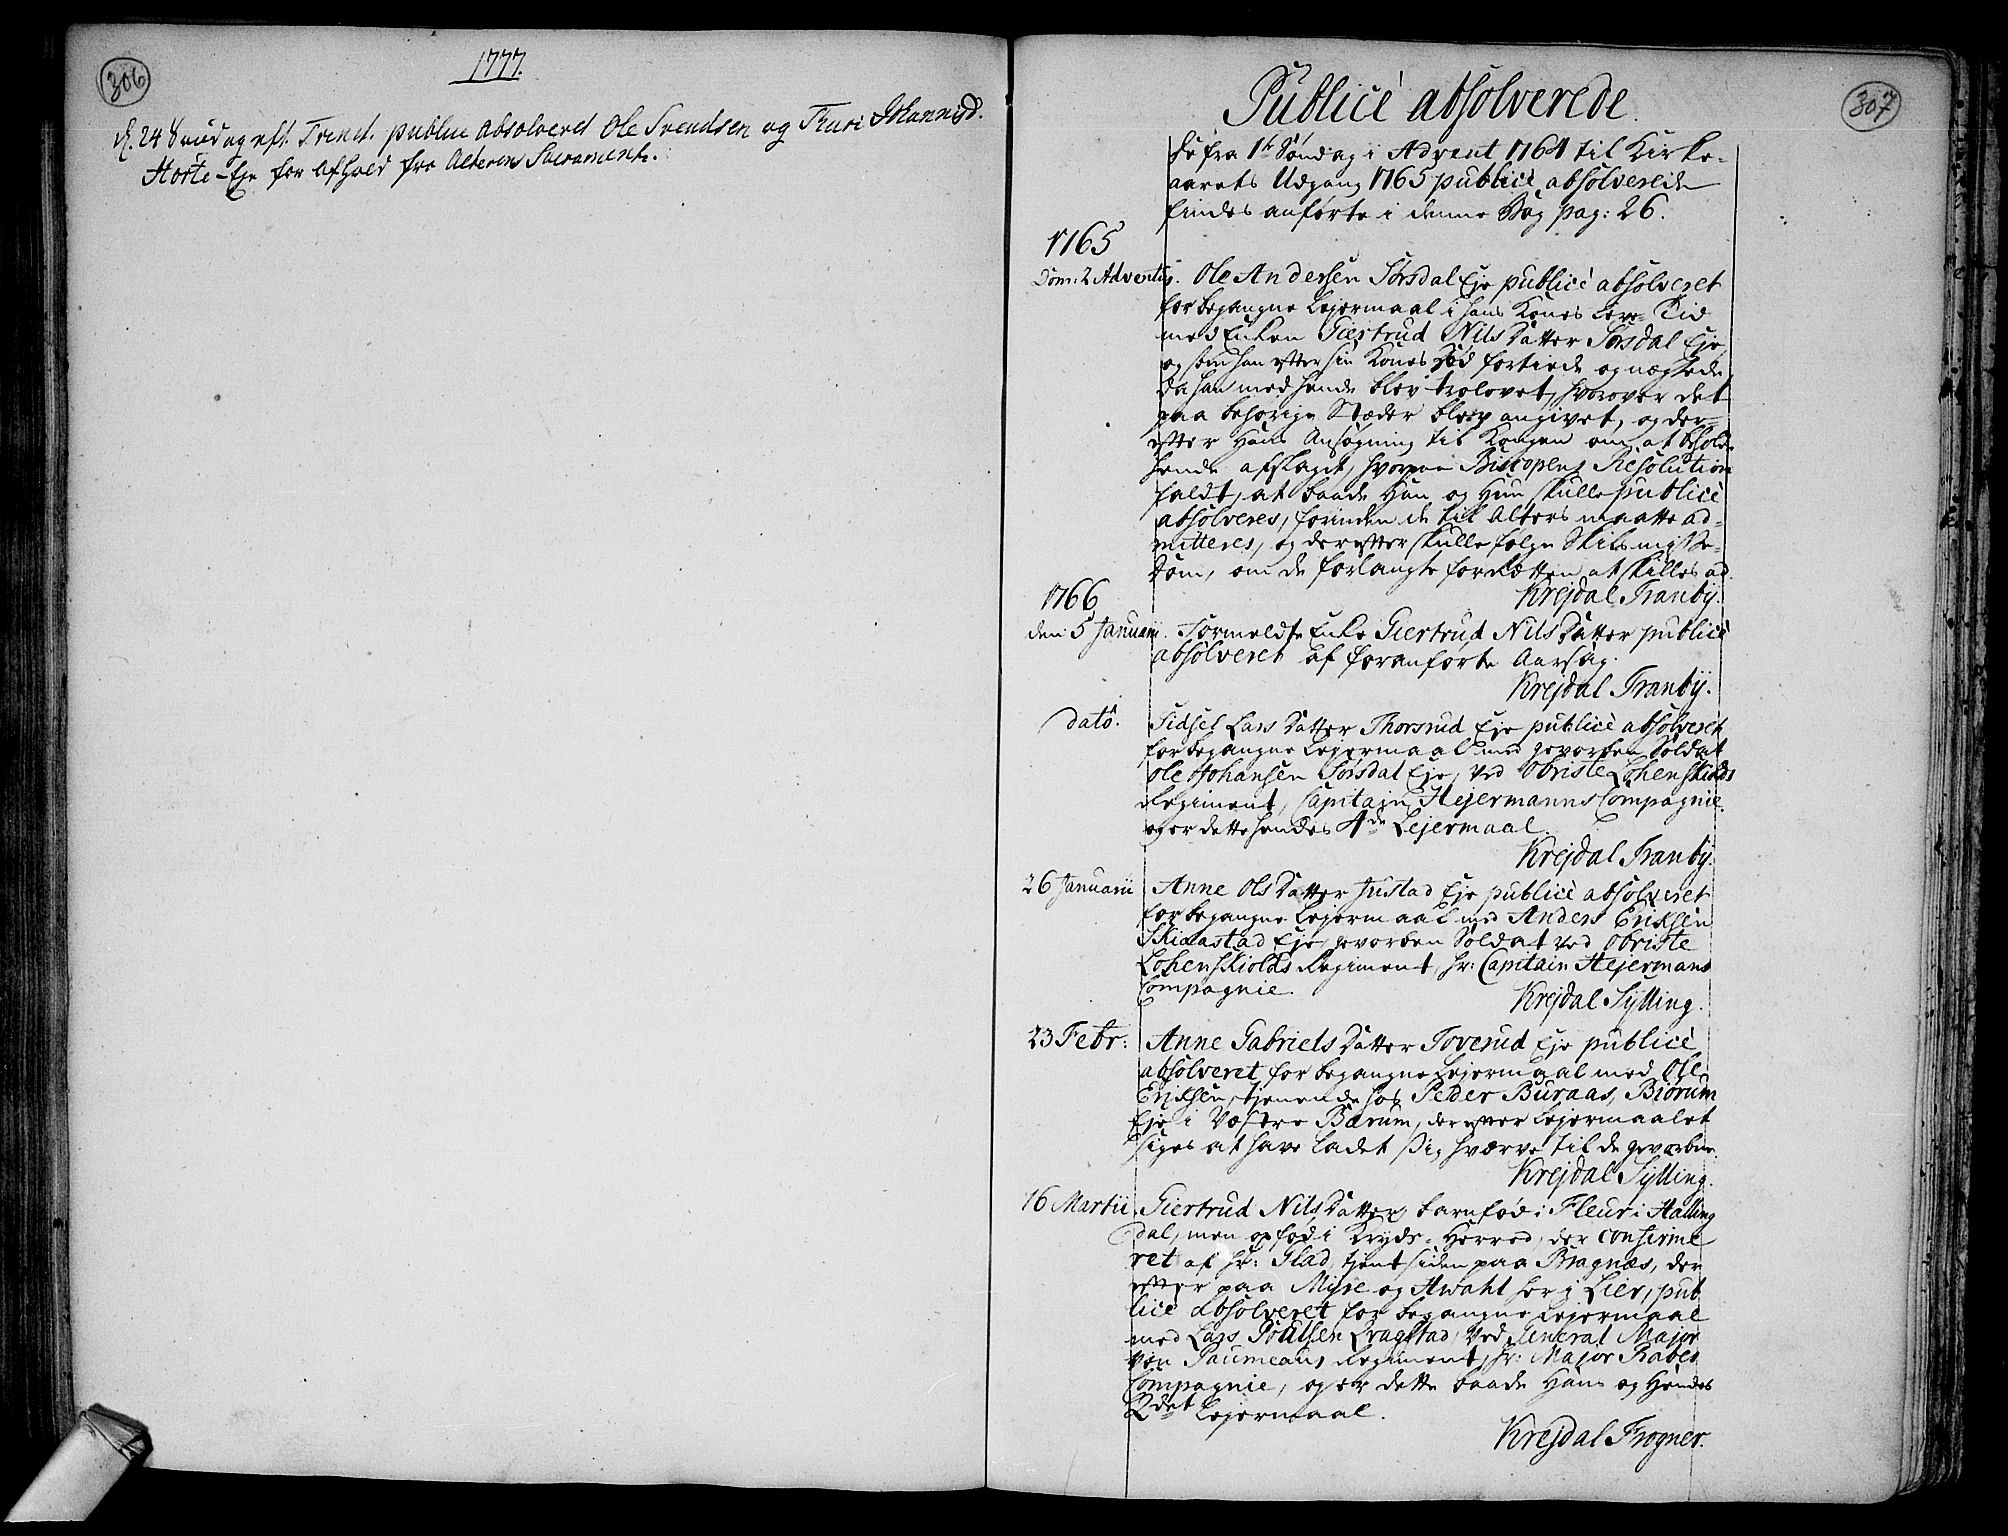 306
1777.
d. 24 Søndag eft. Trinit. publice absolveret Ole Svendsen og Thuri Johannisd.
Hørte-Eje for Afhold fra Alterens Sacramente.
307
Publicè absolverede.
De fra 1te Søndag i Advent 1764 til Kirke-
aarets Udgang 1765 publicè absolverede
findes anførte i denne Bog pag: 26.
1765
Dom: 2 Adventus. Ole Andersen Sørsdal Eje publicè absolveret
for begangne Lejermaal i hans Kones leve-Tid
med Enken Giertrud Nils Datter Sørsdal Eje,
og som han efter sin Kones Død fortiede og nægtede
da han med hende blev trolovet, hvorover det
paa behørige Stæder blev angivet, og der-
efter Hans Ansøgning til Kongen om at beholde
hende afslaget, hvorpaa Biscopens Resolution
faldt, at baade Han og Hun skulle publicè
absolveres, forinden de til Alters maatte ad-
mitteres, og derefter skulle følge Skilsmisse-
Dom, om de forlangte for Retten at skilles ad.
Krejdal Tranbÿ.
1766
den 5 Januarii. Formeldte Enke Giertrud Nils Datter publicè
absolveret af foranførte Aarsag.
Krejdal Tranbÿ.
dato. Sidsel Lars Datter Thorsrud Eje publicè absolveret
for begangne Lejermaal med gevorben Soldat
Ole Johansen Sørsdal Eje, ved Obriste Lohenskiolds
Regiment, Capitain Hejermanns Compagnie.
og er dette hendes 4de Lejermaal.
Krejdal Tranbÿ.
26 Januarii Anne Ols Datter Justad Eje publicè absolveret
for begangne Lejermaal med Anders Eriksen
Skiæastad Eje, gevorben Soldat ved Obriste
Lohenskiolds Regiment, Hr: Capitain Hejermans
Compagnie.
Krejdal Sÿlling.
23 Febr: Anne Gabriels Datter Toverud Eje publicè
absolveret for begangne Lejermaal med Ole
Eriksen, tjenende hos Peder Buraas, Biørum
Eje i Vestre Bærum, der efter Lejermaalet
siges at have ladet sig hværve til de gevorbne.
Krejdal Sÿlling.
16 Martii. Giertrud Nils Datter, barnfød i Fleur i Halling
dal, men opfød i Kryds-Herred, der confirme
ret af Hr: Glad, tjent siden paa Bragnæs, der
efter paa Myre og Hwaht her i Lier, pub
licè absolveret for begangne Lejermaal
med Lars Poulsen Kragstad, ved General Major
von Paumeaus Regiment, Hr: Major Rabes
Compagnie, og er dette baade Hans og Hendes
2det Lejermaal.
Krejdal Frogner.